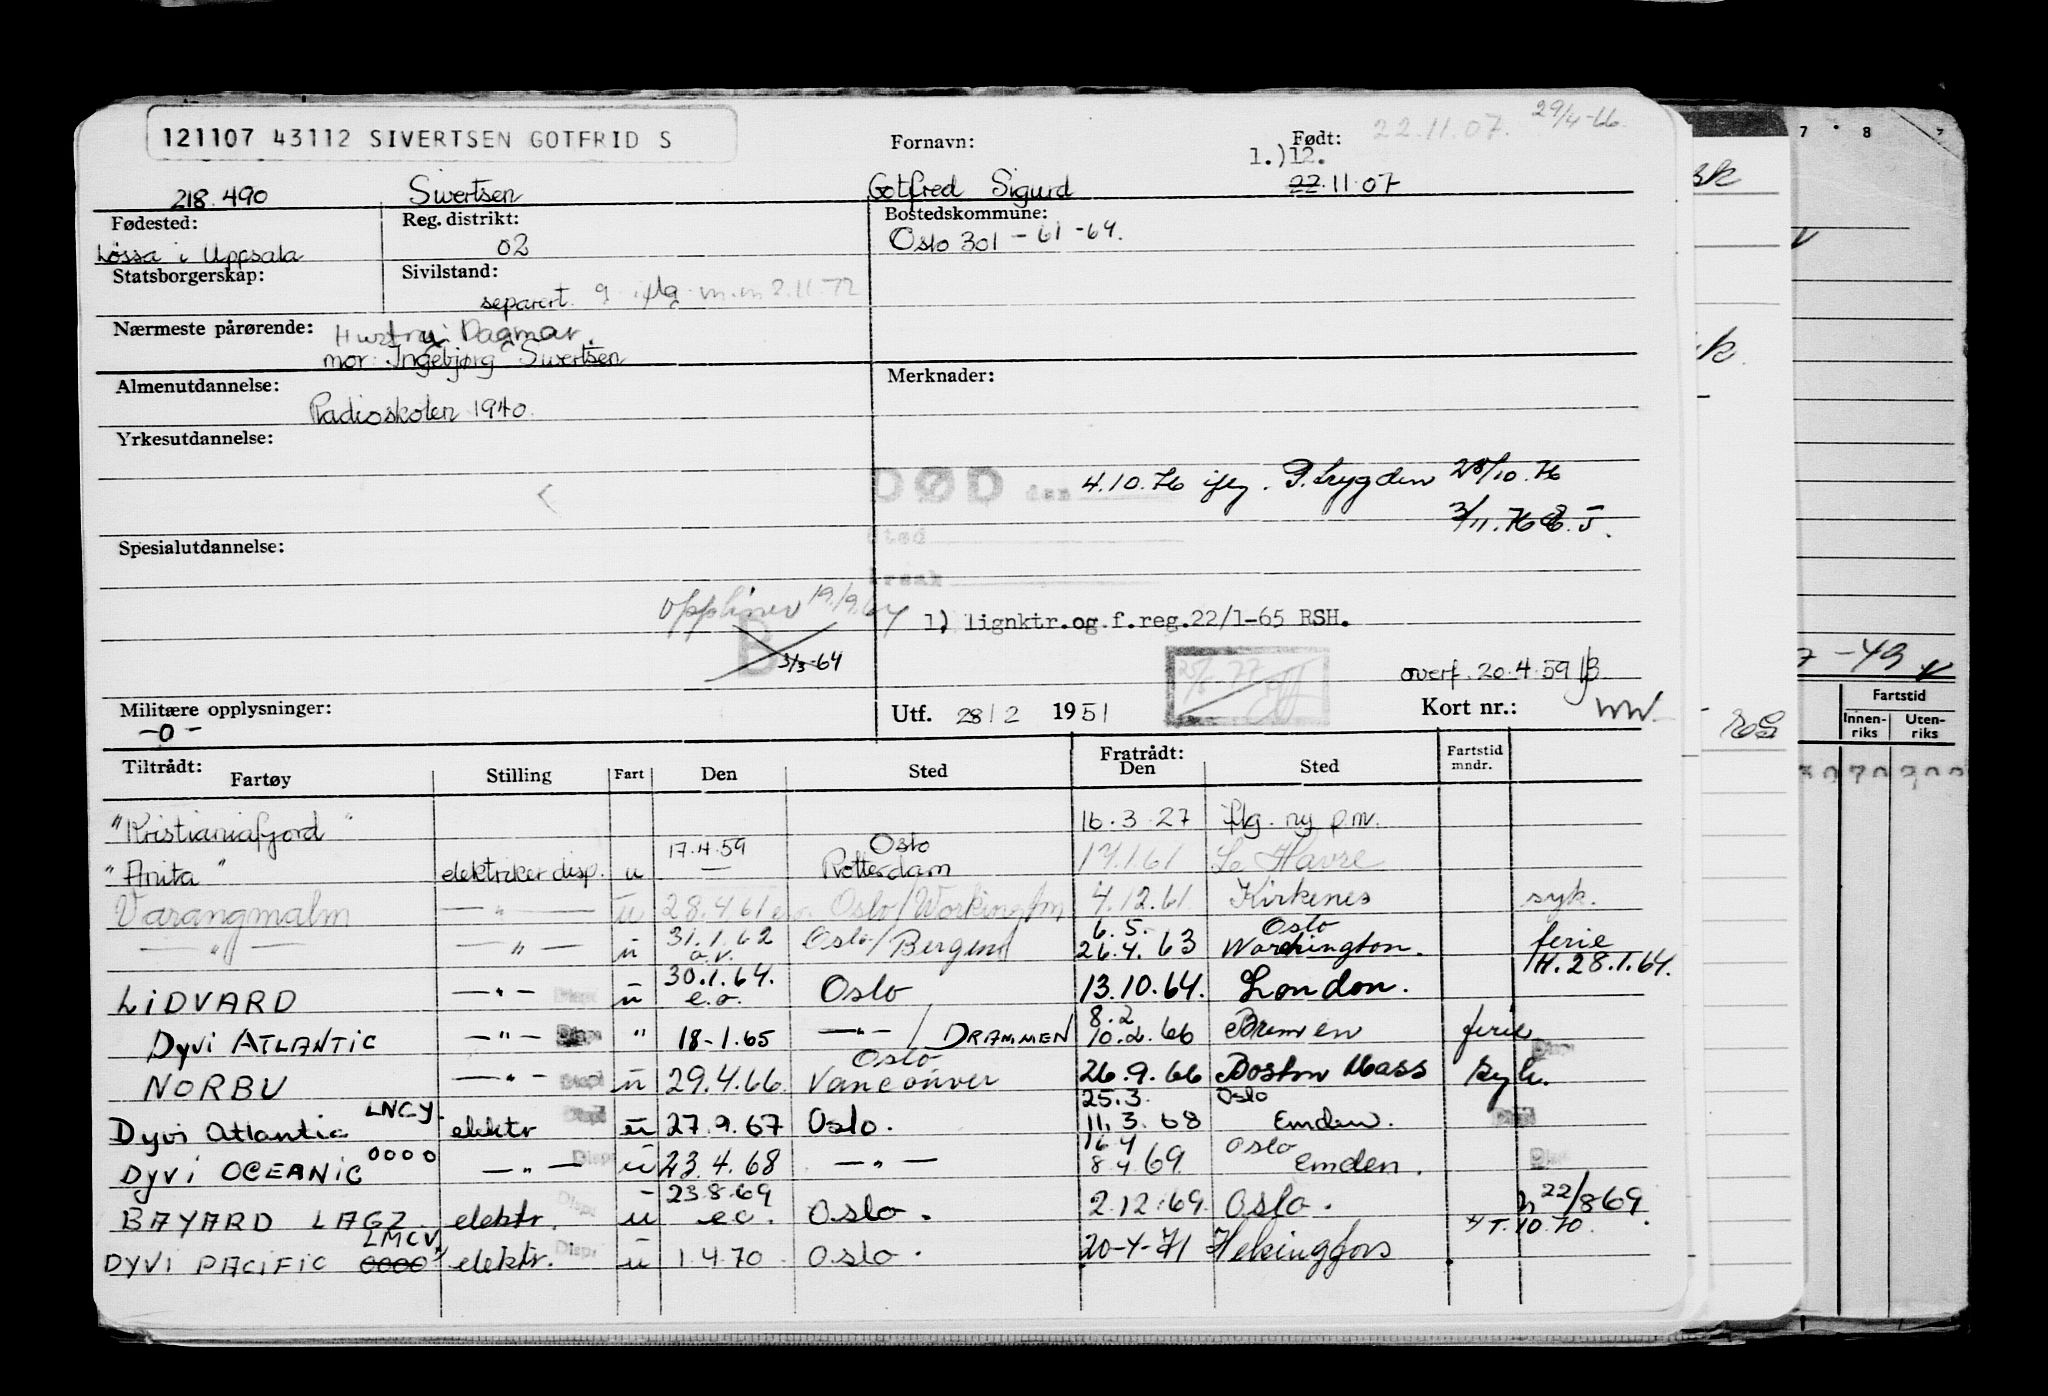 121107 43112 SIVERTSEN GOTFRID S
Fornavn: Født: 22.11.07. 29/4-66.
1.)12.
218.490 Sivertsen Gotfred Sigurd 22.11.07
Fødested: Reg. distrikt: Bostedskommune:
Løssa i Uppsala 02 Oslo 301 - 61 - 64.
Statsborgerskap: Sivilstand:
separert. g. iflg m.m 2.11.72
Nærmeste pårørende: Hustru: Dagmar.
mor: Ingebjørg Sivertsen
Almenutdannelse: Merknader:
Radioskolen 1940.
Yrkesutdannelse:
DØD den 4.10.76 iflg. P.trygden 28/10.76
3/11.76
sted
årsak
Spesialutdannelse:
19/9.64
1) lignktr.og.f.reg.22/1-65 RSH.
B 3/3-64
overf. 20.4.59
Militære opplysninger: Utf. 28/2 1951 Kort nr.:
-0-
Tiltrådt: Fratrådt:
Fartøy Stilling Fart Den Sted Den Sted Fartstid mndr.
"Kristianiafjord" 16.3.27 iflg. ny p.m.
17.4.59 Oslo
"Anita" elektriker disp. u — Rotterdam 17.1.61 Le Havre
Varangmalm — " — u 28.4.61 Oslo/Workington 4.12.61. Kirkenes syk.
31.1.62 6.5. Oslo
— " — — " — u a.v. Oslo/Bergen 26.4.63 Workington. ferie
30.1.64. H.28.1.64.
LIDVARD — " — u e.o. Oslo 13.10.64. London.
8.2
Dyvi ATLANTIC — " — " 18-1.65 — " — / DRAMMEN 10.2.66 Bremen ferie
Oslo
NORBU — " — u 29.4.66. Vancouver 26.9.66 Boston Mass syk.
LNCY. 25.3. Oslo
Dyvi Atlantic elektr u 27.9.67 Oslo. 11.3.68 Emden.
0000 16.4 Oslo
Dyvi OCEANIC — " — u 23.4.68 — " — 8.4.69 Emden.
23.8.69
BAYARD LAGZ elektr. u eo. Oslo. 2.12.69 Oslo. 22/869.
LMCV 10.70.
DYVI PACIFIC 0000 elektr. u 1.4.70 Oslo. 20-4-71 Helsingfors
7 8
7 -49
Fartstid
Innen-riks Uten-riks